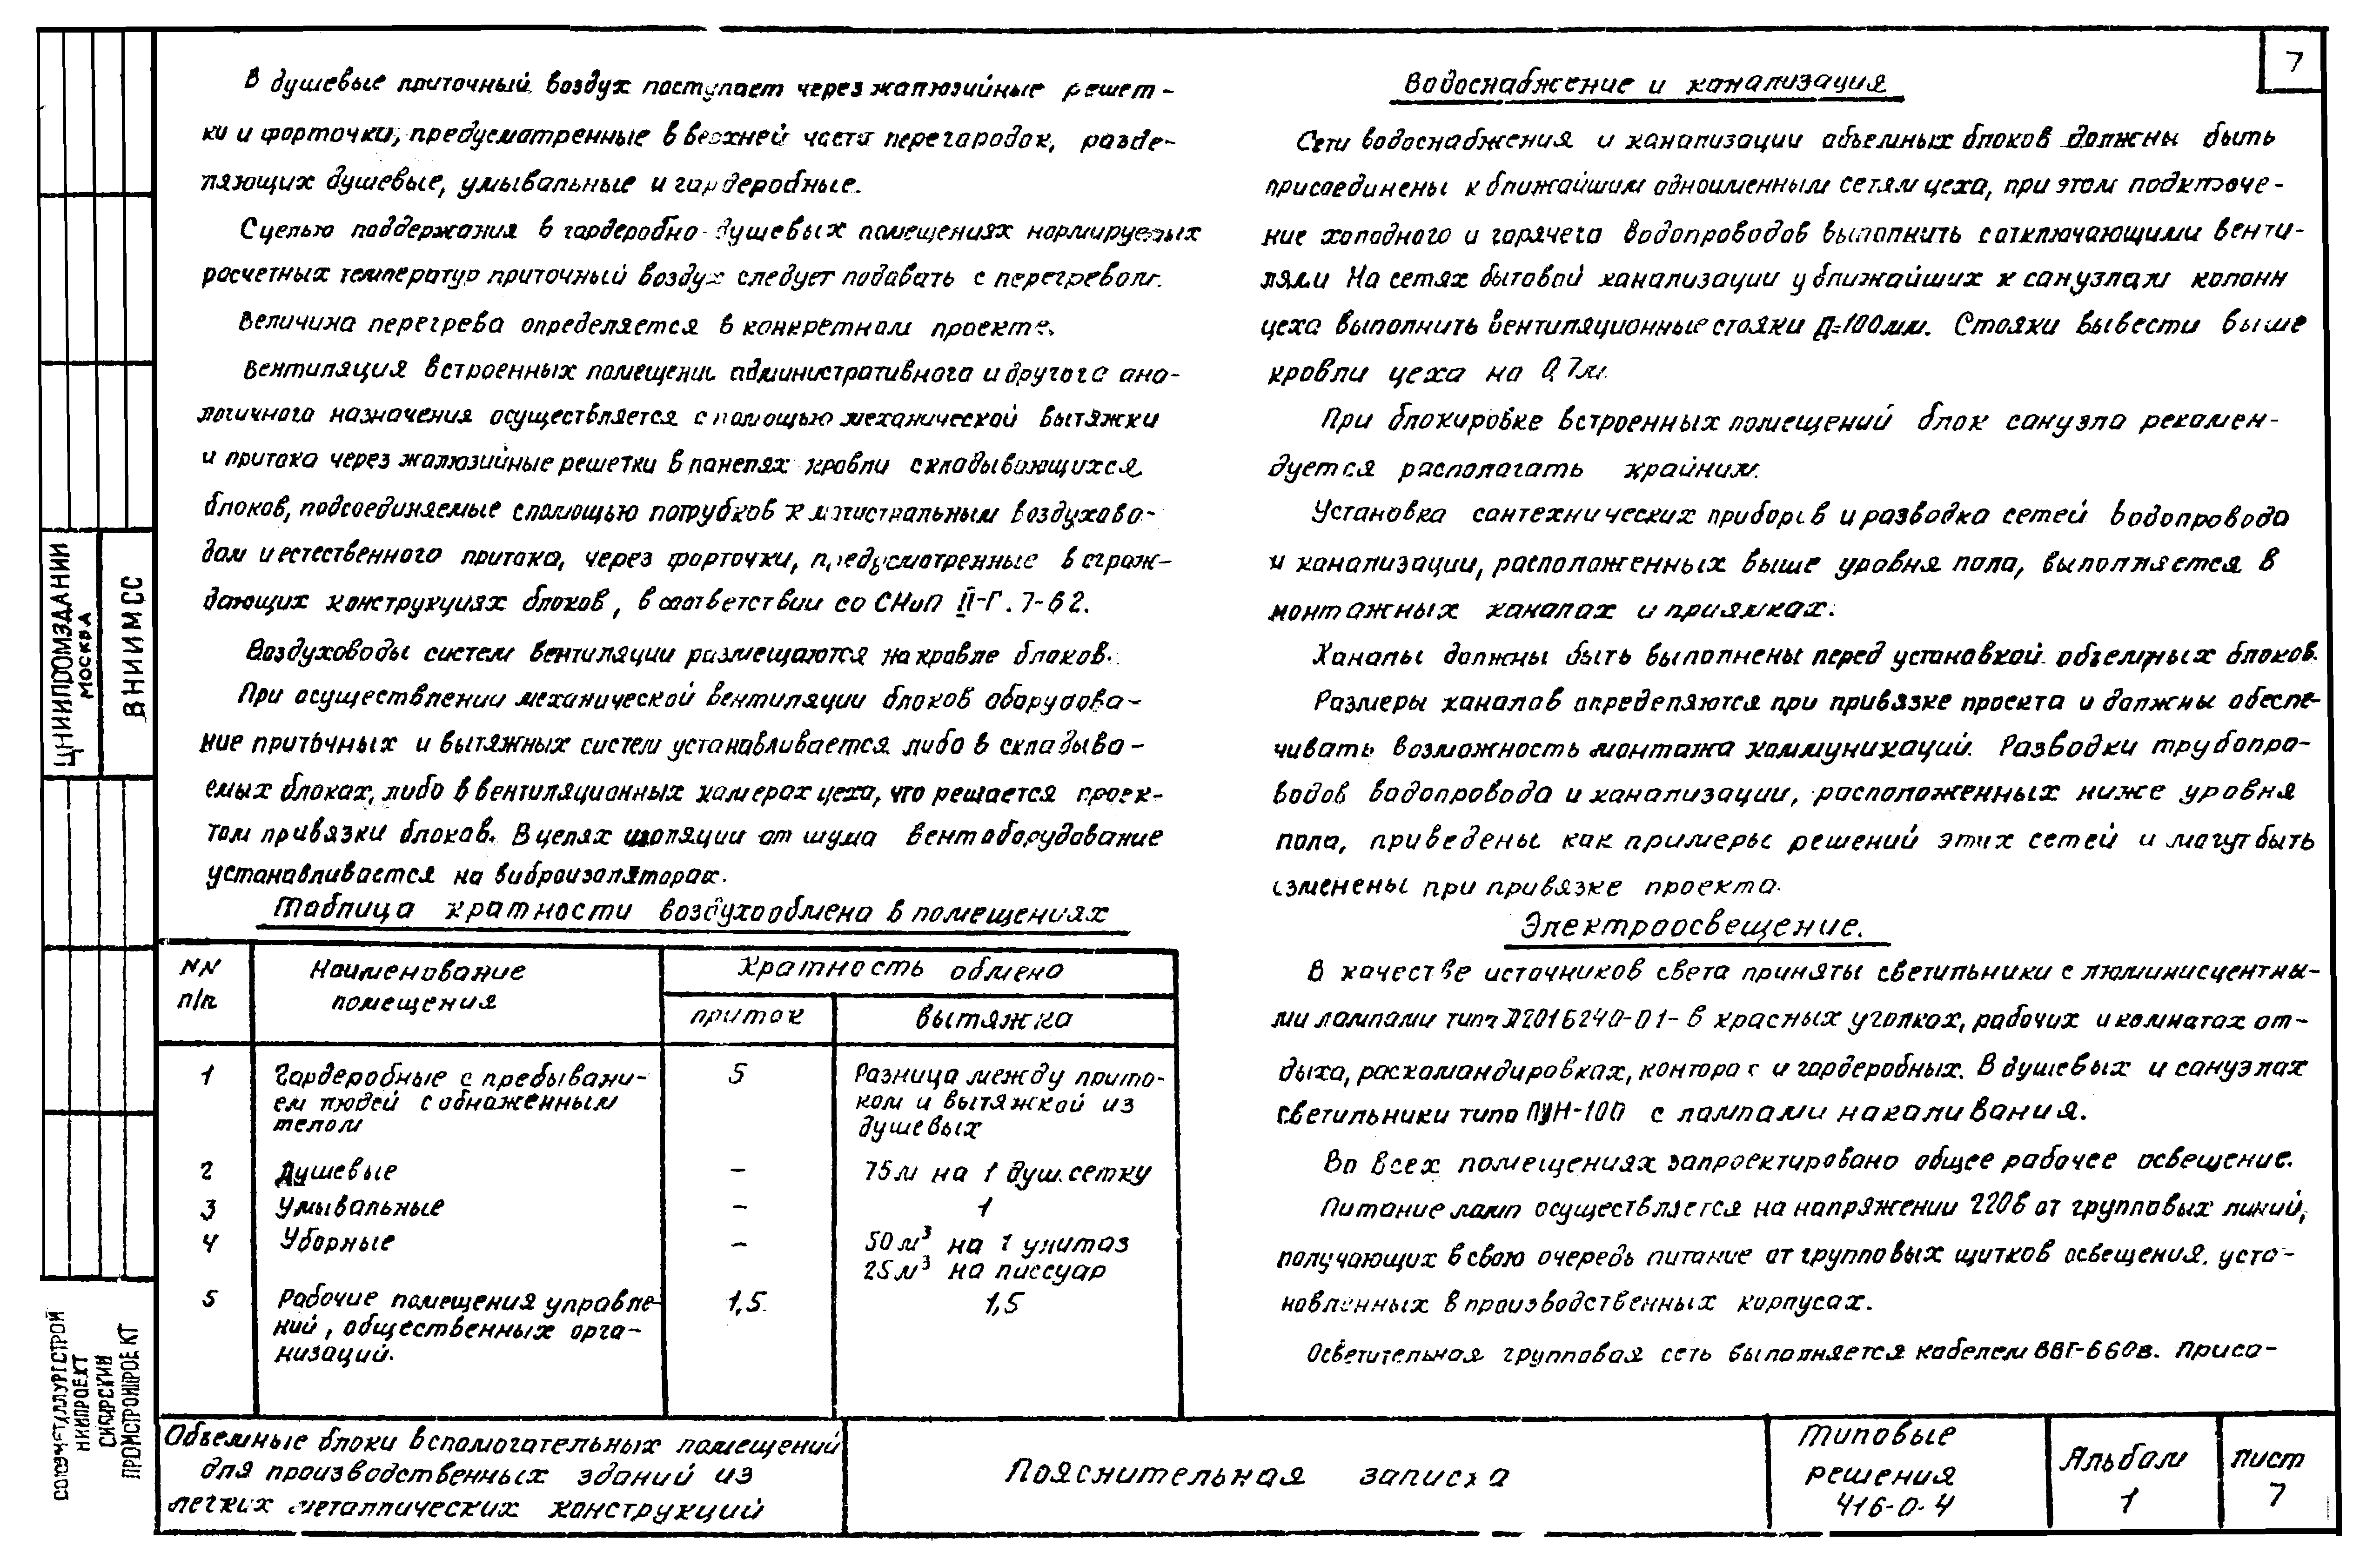 7
В душевые приточный воздух поступает через жалюзийные решет-
ки и форточки, предусматренные в верхней части перегородок, разде-
ляющих душевые, умывальные и гардеробные.
С целью поддержания в гардеробно-душевых помещениях нормируемых
расчетных температур приточный воздух следует подавать с перегревом.
Величина перегрева определяется в конкретном проекте.
Вентиляция встроенных помещений административного и другого ана-
логичного назначения осуществляется с помощью механической вытяжки
и притока через жалюзийные решетки в панелях кровли складывающихся
блоков, подсоединяемые с помощью патрубков к магистральным воздухово-
дам и естественного притока, через форточки, предусмотренные в ограж-
дающих конструкциях блоков, в соответствии со СНиП II-Г. 7-62.
Воздуховоды систем вентиляции размещаются на кровле блоков.
При осуществлении механической вентиляции блоков оборудова-
ние приточных и вытяжных систем устанавливается либо в складыва-
емых блоках, либо в вентиляционных камерах цеха, что решается проек-
том привязки блоков. В целях изоляции от шума вентоборудование
устанавливается на виброизоляторах.
Таблица кратности воздухообмена в помещениях
NN п/п
Наименование помещения
Кратность обмена
приток
вытяжка
1 Гардеробные с пребывани- 5 Разница между прито-
ем людей с обнаженным ком и вытяжкой из
телом душевых
2 Душевые – 75м на 1 душ. сетку
3 Умывальные – 1
4 Уборные – 50 м³ на 1 унитаз
25 м³ на писсуар
5 Рабочие помещения управле- 1,5 1,5
ний, общественных орга-
низаций.
Водоснабжение и канализация
Сети водоснабжения и канализации объемных блоков должны быть
присоединены к ближайшим одноименным сетям цеха, при этом подключе-
ние холодного и горячего водопроводов выполнить с отключающими венти-
лями На сетях бытовой канализации у ближайших к санузлам колонн
цеха выполнить вентиляционные стояки Д=100мм. Стояки вывести выше
кровли цеха на 0,7м.
При блокировке встроенных помещений блок санузла рекомен-
дуется располагать крайним.
Установка сантехнических приборов и разводка сетей водопровода
и канализации, расположенных выше уровня пола, выполняется в
монтажных каналах и приямках.
Каналы должны быть выполнены перед установкой объемных блоков.
Размеры каналов определяются при привязке проекта и должны обеспе-
чивать возможность монтажа коммуникаций. Разводки трубопро-
водов водопровода и канализации, расположенных ниже уровня
пола, приведены как примеры решений этих сетей и могут быть
изменены при привязке проекта.
Электроосвещение.
В качестве источников света приняты светильники с люминисцентны-
ми лампами типа Л2016240-01- в красных уголках, рабочих и комнатах от-
дыха, раскомандировках, конторах и гардеробных. В душевых и санузлах
светильники типа ПУН-100 с лампами накаливания.
Во всех помещениях запроектировано общее рабочее освещение.
Питание ламп осуществляется на напряжении 220в от групповых линий,
получающих в свою очередь питание от групповых щитков освещения, уста-
новленных в производственных корпусах.
Осветительная групповая сеть выполняется кабелем ВВГ-660в. Присо-
ЦНИИПРОМЗДАНИЙ
МОСКВА
ВНИИМСС
СОЮЗМЕТАЛЛУРГСТРОЙ
НИИПРОЕКТ
СИБИРСКИЙ
ПРОМСТРОЙПРОЕКТ
Объемные блоки вспомогательных помещений
для производственных зданий из
легких металлических конструкций
Пояснительная записка
Типовые
решения
416-0-4
Альбом
1
Лист
7